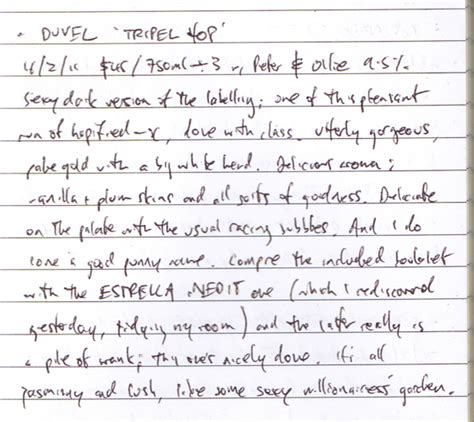 • DUVEL 'TRIPEL HOP'
4/2/11 $45/750ml ÷3 w, Peter & 9.5%
Sexy dark version of the labelling; one of this pleasant
run of hopified-X, done with class. Utterly gorgeous,
pale gold with a big white head. Delicious aroma;
vanilla + plum skins and all sorts of goodness. Delicate
on the palate with the usual racing bubbles. And I do
love a good punny name. Compare the included booklet
with the ESTRELLA INEDIT one (which I rediscovered
yesterday, tidying my room) and the latter really is
a pile of wank; this one's nicely done. It's all
jasminny and lush, like some sexy millionairess' garden.